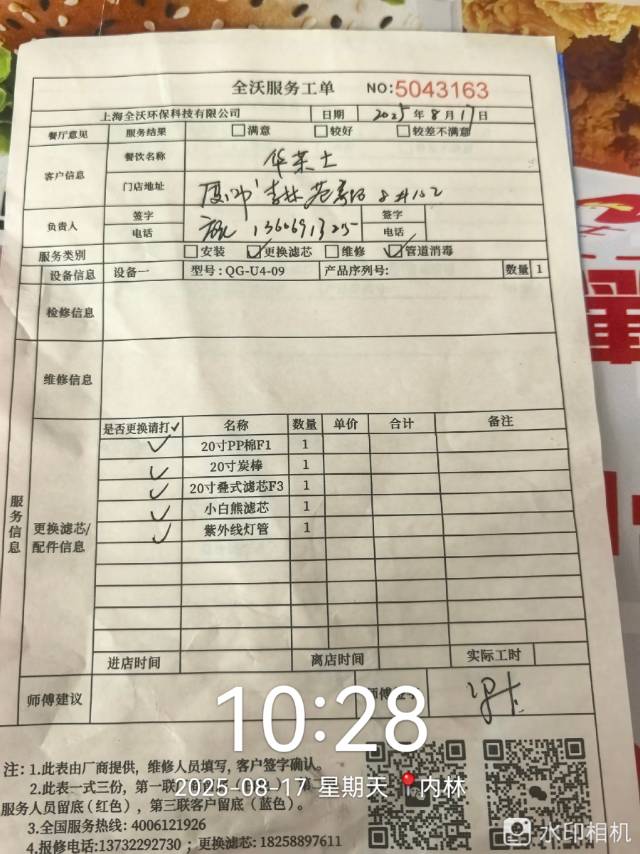 全沃服务工单 NO:5043163
上海全沃环保科技有限公司 日期 2025年8月17日
餐厅意见 服务结果 满意 较好 较差不满意
客户信息 餐饮名称 华莱士
门店地址 厦门
负责人 签字 签字
电话 电话
服务类别 安装 ✓更换滤芯 维修 ✓管道消毒
服务信息
设备信息 设备一 型号:QG-U4-09 产品序列号: 数量 1
检修信息
维修信息
更换滤芯/配件信息
是否更换请打✓ 名称 数量 单价 合计 备注
✓ 20寸PP棉F1 1
✓ 20寸炭棒 1
✓ 20寸叠式滤芯F3 1
✓ 小白熊滤芯 1
✓ 紫外线灯管 1
进店时间 离店时间 实际工时
师傅建议
10:28
2025-08-17 星期天 内林
注:1.此表由厂商提供,维修人员填写,客户签字确认。
2.此表一式三份,第一联
服务人员留底(红色),第三联客户留底(蓝色)。
3.全国服务热线:4006121926
4.报修电话:13732292730;更换滤芯:18258897611
水印相机